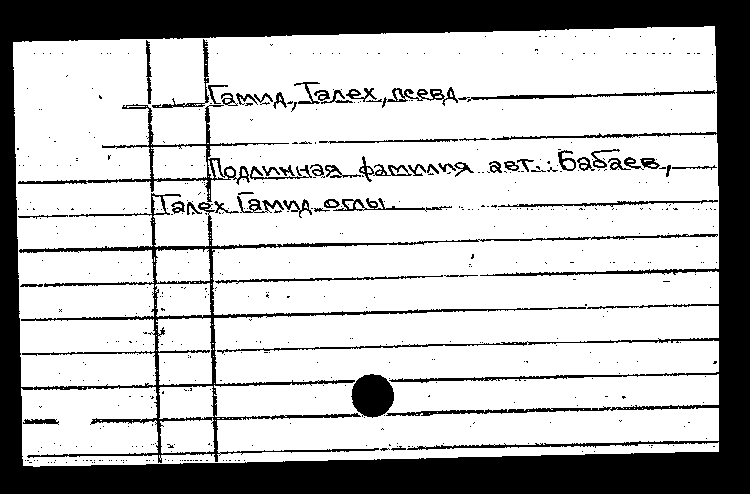 Гамид, Талех, псевд.
Подлинная фамилия авт.: Бабаев,
Талех Гамид оглы.